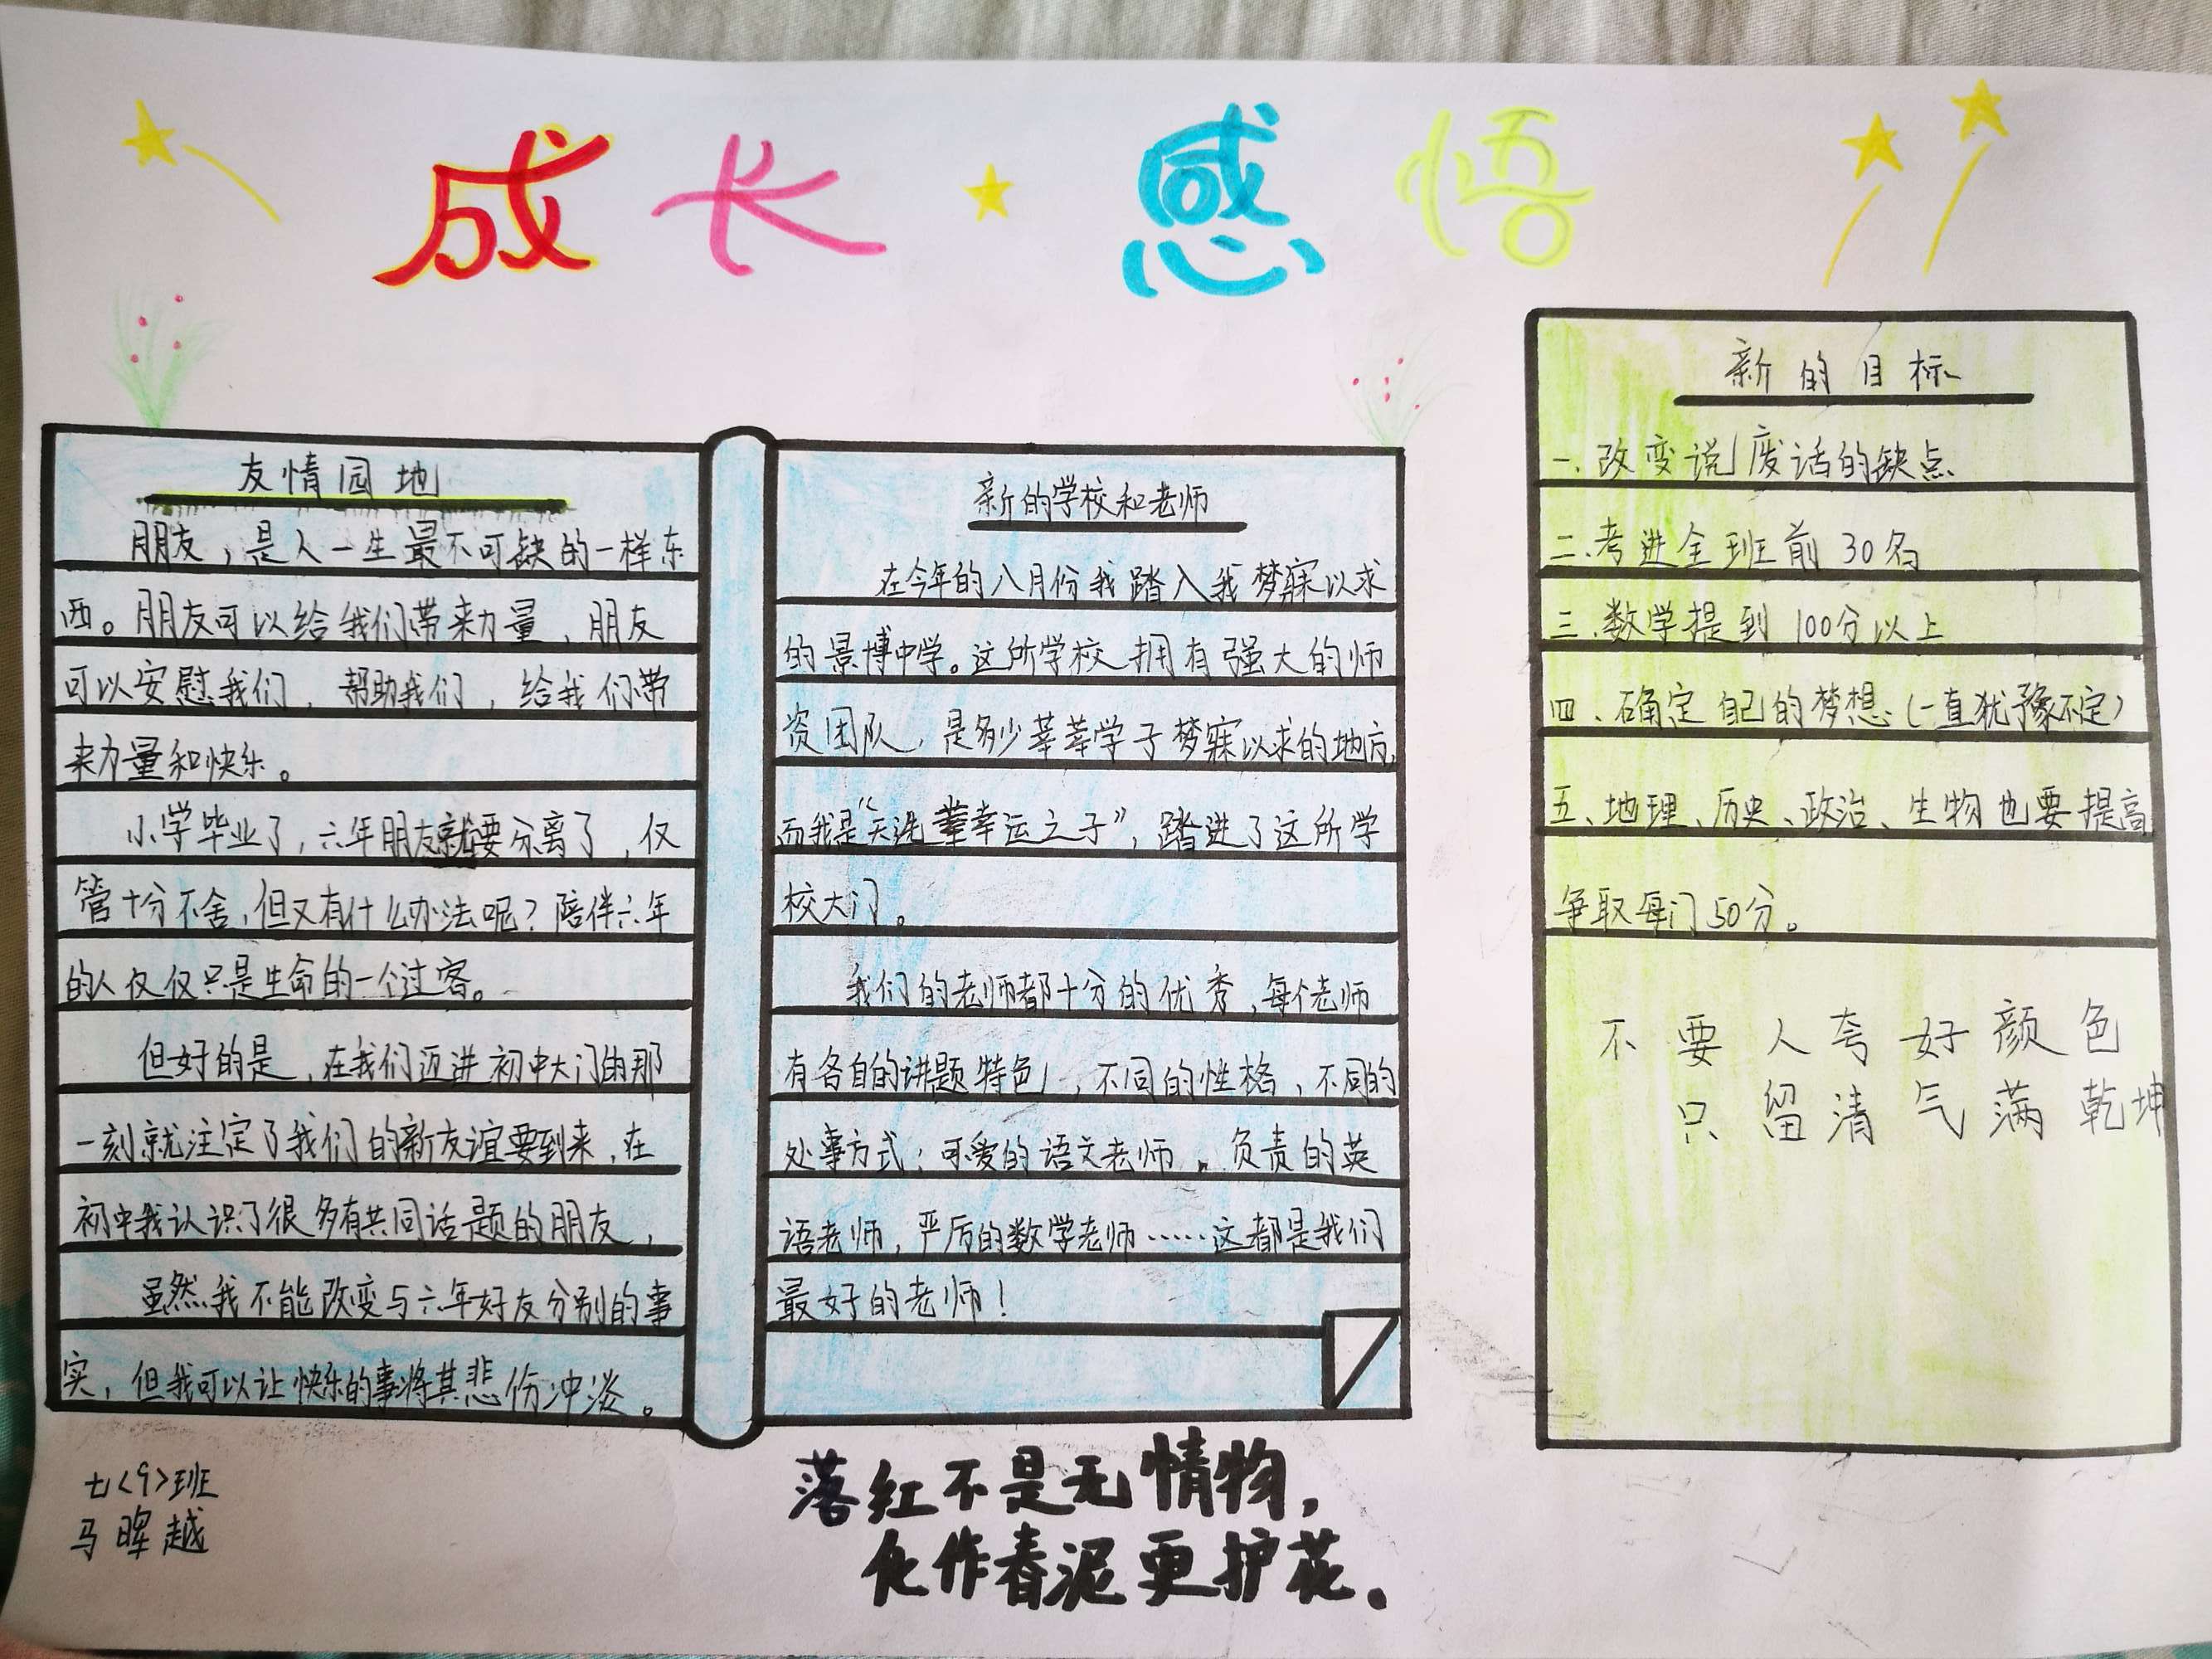 成长感悟
友情园地
朋友，是人一生最不可缺的一样东
西。朋友可以给我们带来力量，朋友
可以安慰我们，帮助我们，给我们带
来力量和快乐。
小学毕业了，六年朋友就要分离了，仅
管十分不舍，但又有什么办法呢？陪伴六年
的人仅仅只是生命的一个过客。
但好的是，在我们迈进初中大门的那
一刻就注定了我们的新友谊要到来，在
初中我认识了很多有共同话题的朋友，
虽然我不能改变与六年好友分别的事
实，但我可以让快乐的事将其悲伤冲淡。
新的学校和老师
在今年的八月份我踏入我梦寐以求
的景博中学。这所学校拥有强大的师
资团队，是多少莘莘学子梦寐以求的地方，
而我是“天选幸运之子”，踏进了这所学
校大门。
我们的老师都十分的优秀，每个老师
有各自的讲题特色，不同的性格，不同的
处事方式：可爱的语文老师，负责的英
语老师，严厉的数学老师……这都是我们
最好的老师！
新的目标
一、改变说废话的缺点
二、考进全班前30名
三、数学提到100分以上
四、确定自己的梦想（一直犹豫不定）
五、地理、历史、政治、生物也要提高
争取每门50分。
不要人夸好颜色
只留清气满乾坤
落红不是无情物，
化作春泥更护花。
七<9>班
马晖越